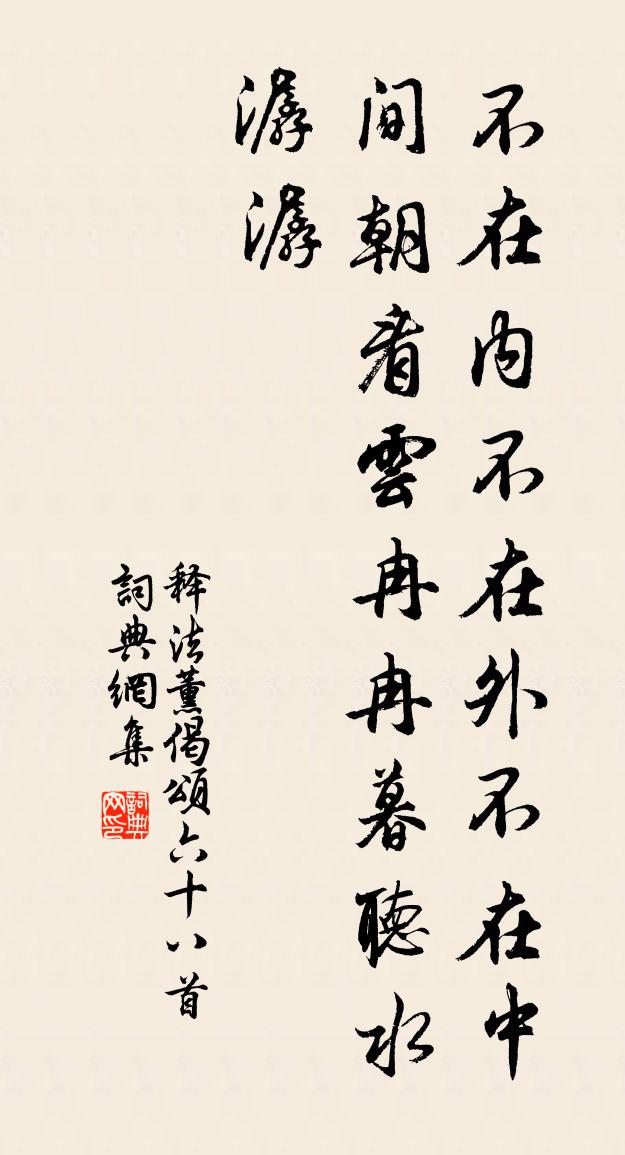 不在内不在外不在中
间朝看雲冉冉暮聽水
潺潺
释法薰偈頌六十八首
詞典網集
詞典网印